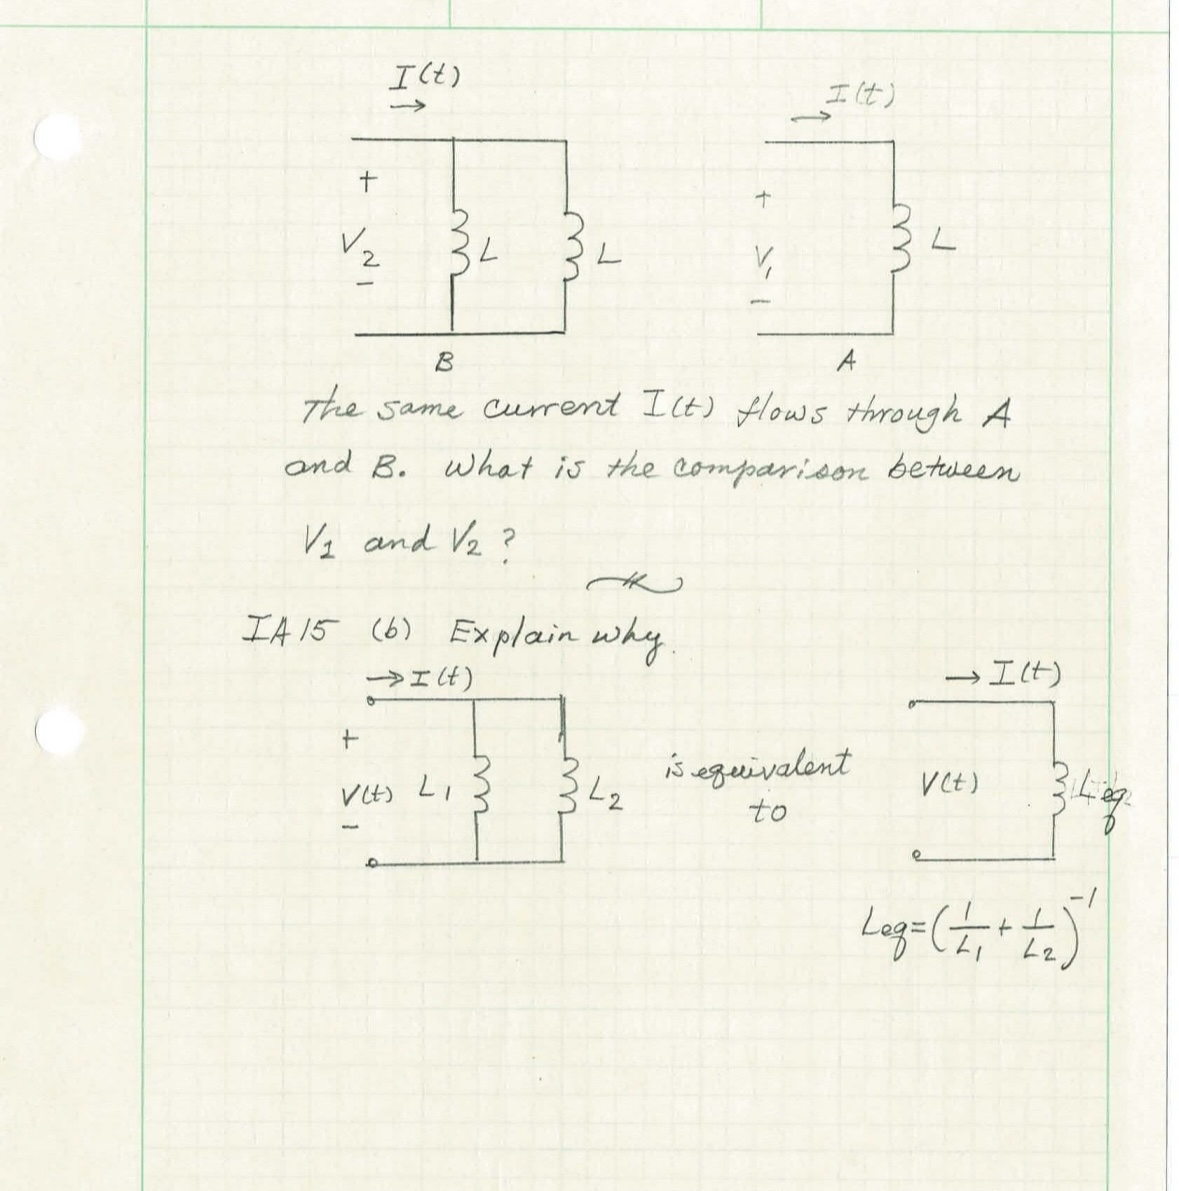 I(t)
I(t)
+
+
V2
L
L
V1
L
-
-
B
A
The same current I(t) flows through A
and B. What is the comparison between
V1 and V2 ?
IA15 (b) Explain why.
→ I(t)
→ I(t)
+
V(t) L1
L2
is equivalent
to
V(t)
Leq
-
Leq=(1/L1 + 1/L2)^-1